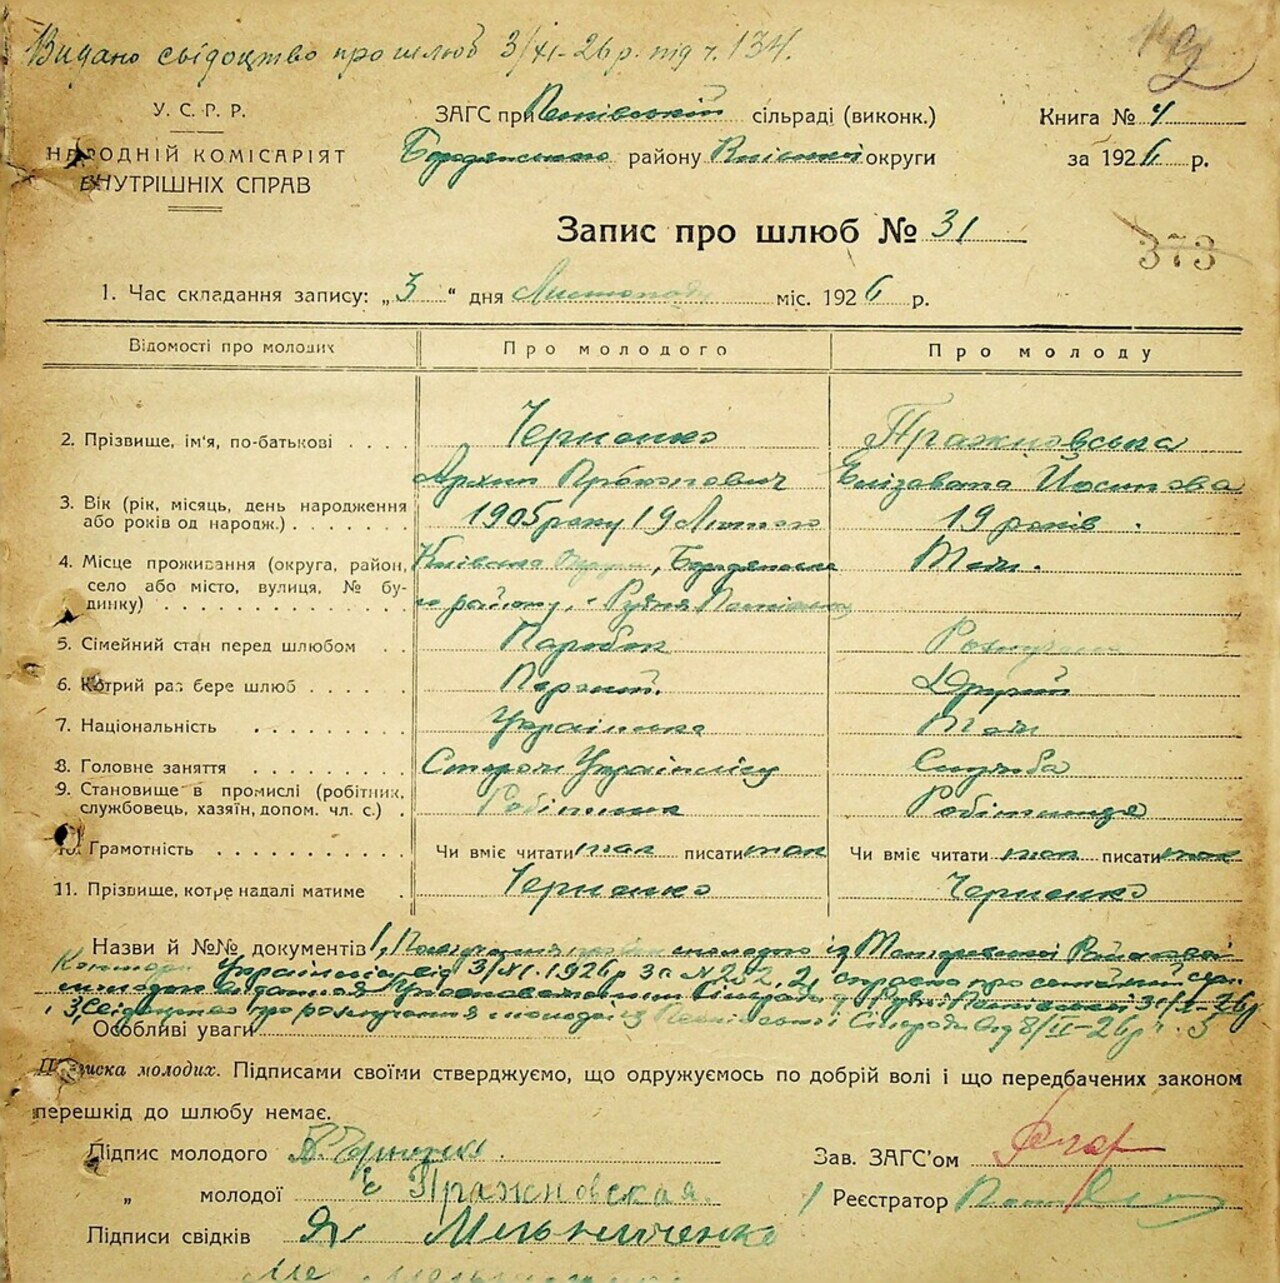 Видано свідоцтво про шлюб 3/XI-26 р. під ч. 134.
У. С. Р. Р.
НАРОДНІЙ КОМІСАРІЯТ
ВНУТРІШНІХ СПРАВ
ЗАГС при сільраді (виконк.)
Бородянського району Київської округи
Книга № 4
за 1926 р.
Запис про шлюб № 31
373
1. Час складання запису: „3“ дня Листопада міс. 1926 р.
Відомості про молодих Про молодого Про молоду
2. Прізвище, ім'я, по-батькові . . . . Черненко Пражновська
Архип Єлізавета Йосипова
3. Вік (рік, місяць, день народження або років од народж.) . . . . . . . 1905 року 19 Лютого 19 років .
4. Місце проживання (округа, район, село або місто, вулиця, № будинку) . . . . . . . . . . . . . . Київська , Бородянсько
го району, Рудня Тож.
5. Сімейний стан перед шлюбом . . Парубок
6. Котрий раз бере шлюб . . . . . . Перший. Другий
7. Національність . . . . . . . . Українська Тож
8. Головне заняття . . . . . . . . Сторож Українлісу Служба
9. Становище в промислі (робітник, службовець, хазяїн, допом. чл. с.) . Робітник Робітниця
10. Грамотність . . . . . . . . . . Чи вміє читати так писати так Чи вміє читати так писати так
11. Прізвище, котре надалі матиме . Черненко Черненко
Назви й №№ документів 1, молодого із Районової
Контори Українліса від 3/XI. 1926 р за № 252. 2, справка про сімейний стан
молодого виданная Уповноваженим Сільради у Рудні 31/X-26р
3, Свідоцтво про розлучення молодої із Сільради від 8/II-26р ч. 3
Особливі уваги
Підписка молодих. Підписами своїми стверджуємо, що одружуємось по добрій волі і що передбачених законом
перешкід до шлюбу немає.
Підпис молодого А. Черненко.
„ молодої Є Пражновская.
Підписи свідків Як Мельниченко
Зав. ЗАГС'ом
Реєстратор